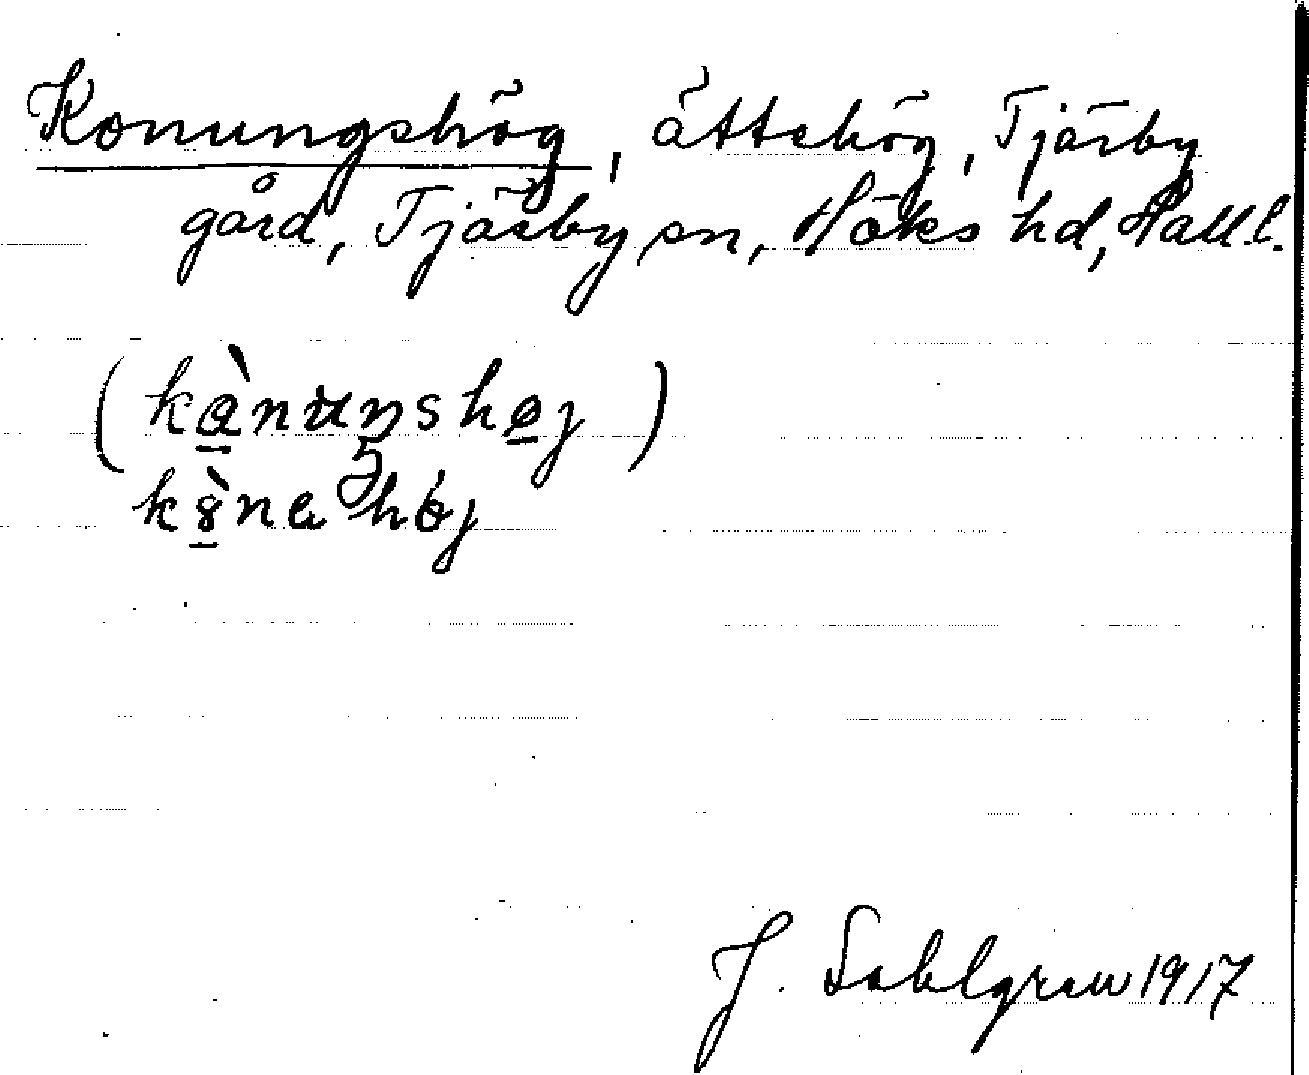 Konungshög, ättehög, Tjärby
gård, Tjärby sn, Höks hd, Hall.
J. Sahlgren 1917